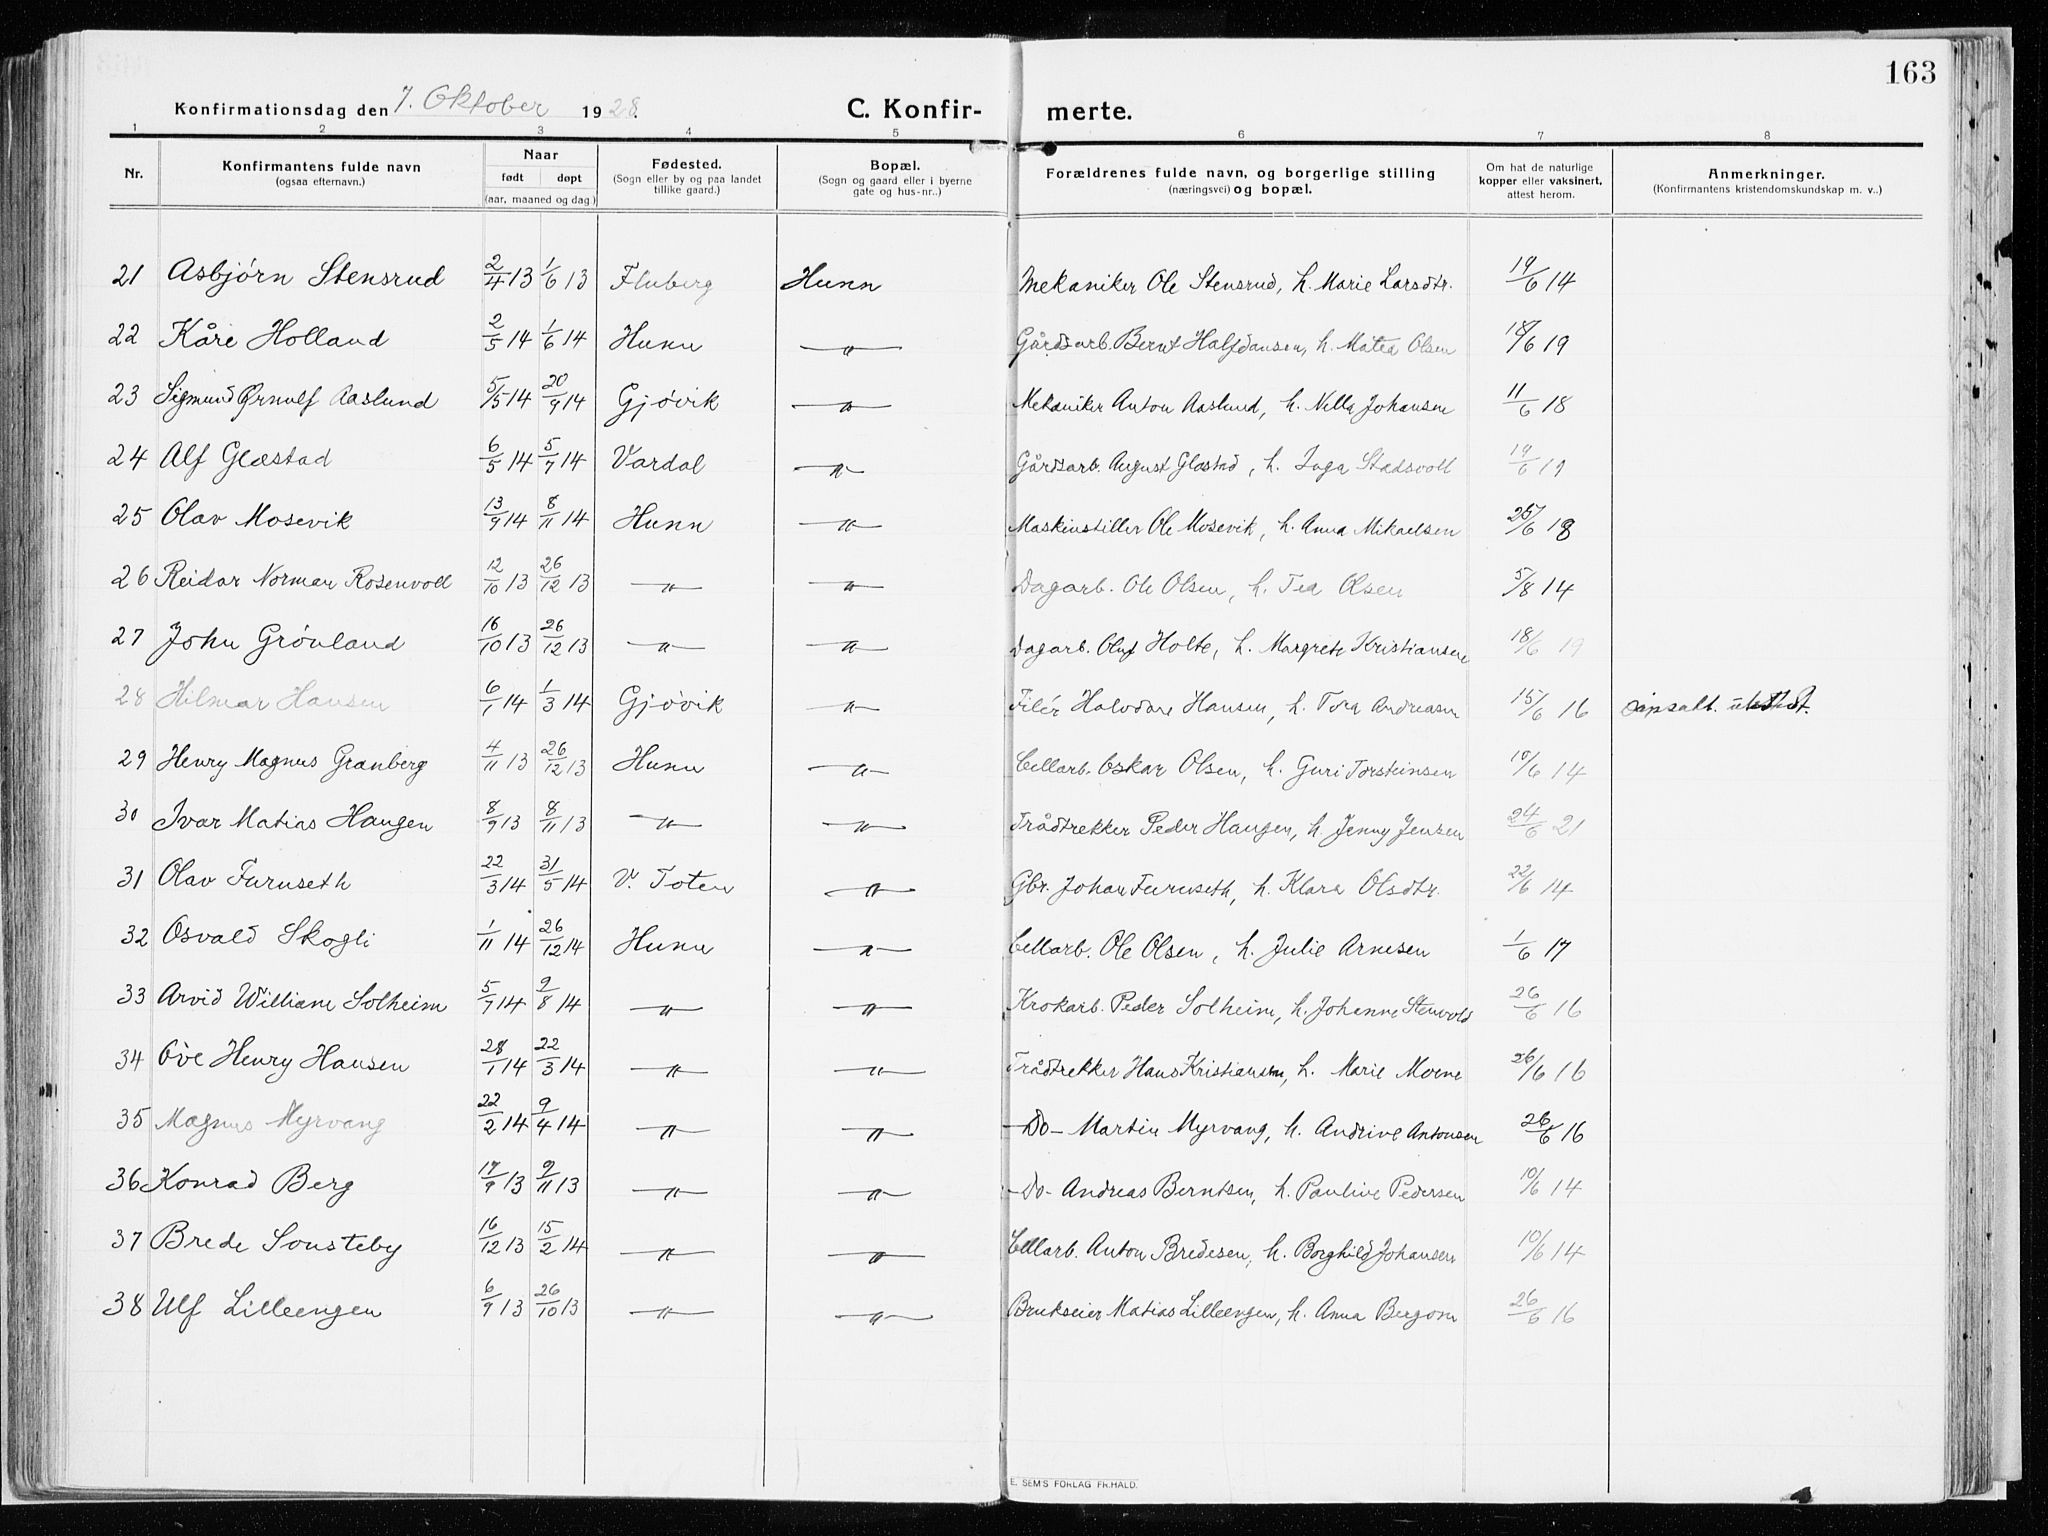 163
Konfirmationsdag den 7. Oktober 1928. C. Konfir- merte.
1 2 3 4 5 6 7 8
Nr. Konfirmantens fulde navn (ogsaa efternavn.) Naar født døpt (aar, maaned og dag.) Fødested. (Sogn eller by og paa landet tillike gaard.) Bopæl. (Sogn og gaard eller i byerne gate og hus-nr..) Forældrenes fulde navn, og borgerlige stilling (næringsvei) og bopæl. Om hat de naturlige kopper eller vaksinert, attest herom. Anmerkninger. (Konfirmantens kristendomskundskap m. v..)
21 Asbjørn Stensrud 2/4 13 1/6 13 Fluberg Hunn Mekaniker Ole Stensrud, h. Marie Larsdtr. 19/6 14
22 Kåre Holland 2/5 14 1/6 14 Hunn —"— Gårdsarb. Bernt Halfdansen, h. Matea Olsen 18/6 19
23 Sigmund Ørnulf Aaslund 5/5 14 20/9 14 Gjøvik —"— Mekaniker Anton Aaslund, h. Nella Johansen 11/6 18
24 Alf Glæstad 6/5 14 5/7 14 Vardal —"— Gårdsarb. August Glæstad, h. Inga Stadsvoll 19/6 19
25 Olav Mosevik 13/9 14 8/11 14 Hunn —"— Maskinstiller Ole Mosevik, h. Anna Mikaelsen 25/6 18
26 Reidar Norman Rosenvold 12/10 13 26/12 13 —"— —"— Dagarb. Ole Olsen, h. Tea Olsen 5/8 14
27 John Grønland 16/10 13 26/12 13 —"— —"— Dagarb. Oluf Holte, h. Margrete Kristiansen 18/6 19
28 Hilmar Hansen 6/1 14 1/3 14 Gjøvik —"— Filér Halvdan Hansen, h. Tora Andreasen 15/6 16
29 Henry Magnus Granberg 4/11 13 26/12 13 Hunn —"— Cellarb. Oskar Olsen, h. Guri Torsteinsen 10/6 14
30 Ivar Matias Haugen 8/9 13 8/11 13 —"— —"— Trådtrekker Peder Haugen, h. Jenny Jensen 24/6 21
31 Olav Furuseth 22/3 14 31/5 14 V. Toten —"— Gbr. Johan Furuseth, h. Klara Olsdtr. 22/6 14
32 Osvald Skogli 1/11 14 26/12 14 Hunn —"— Cellarb. Ole Olsen, h. Julie Arnesen 1/6 17
33 Arvid William Solheim 5/7 14 9/8 14 —"— —"— Krokarb. Peder Solheim, h. Johanne Stenvold 26/6 16
34 Ove Henry Hansen 28/1 14 22/3 14 —"— —"— Trådtrekker Hans Kristiansen, h. Marie Moene 26/6 16
35 Magnus Myrvang 22/2 14 9/4 14 —"— —"— —Do— Martin Myrvang, h. Andrine Antonsen 26/6 16
36 Konrad Berg 17/9 13 9/11 13 —"— —"— —Do— Andreas Berntsen, h. Pauline Pedersen 10/6 14
37 Brede Sønsteby 16/12 13 15/2 14 —"— —"— Cellarb. Anton Bredesen, h. Borghild Johansen 10/6 14
38 Ulf Lilleengen 6/9 13 26/10 13 —"— —"— Brukseier Matias Lilleengen, h. Anna Bergom 26/6 16
E. SEM'S FORLAG FR.HALD.